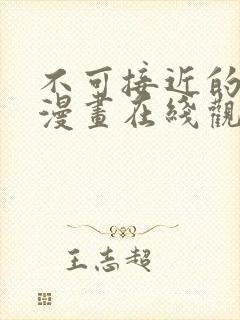 不可接近的
漫畫在綫觀
王志超